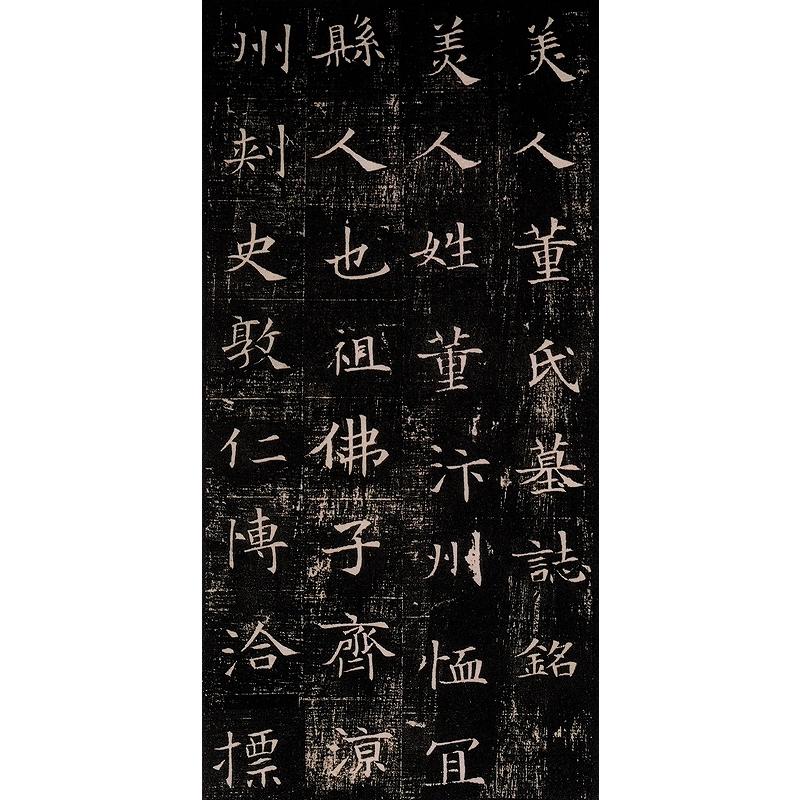 美人董氏墓誌銘
美人姓董汴州恤冝
縣人也祖佛子齊涼
州刺史敦仁博洽摽